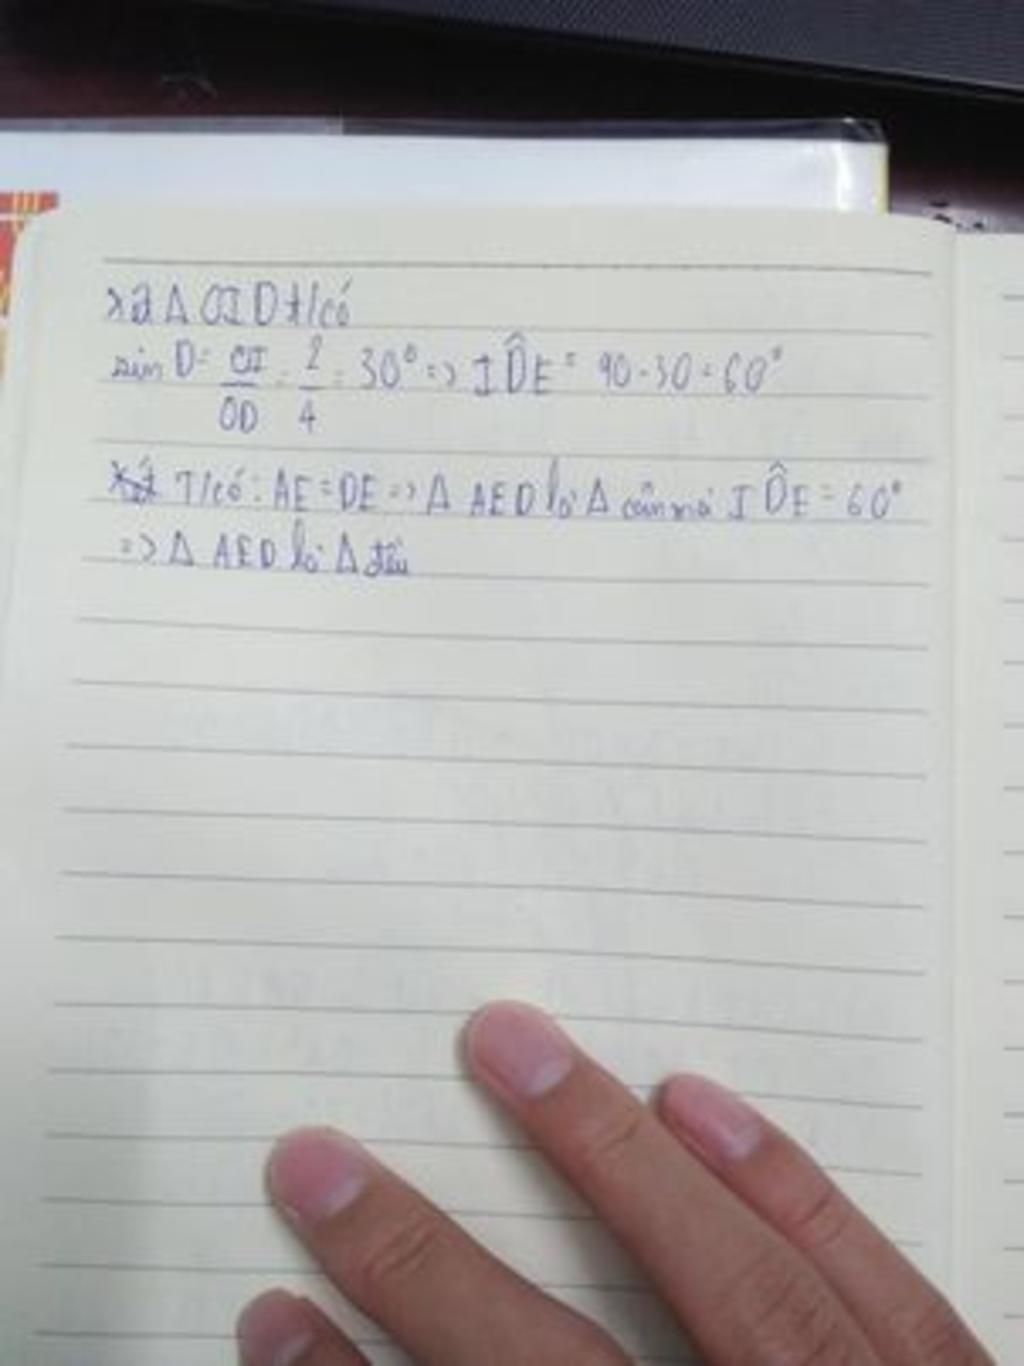 Xét Δ OID t/có
sin D = OI/OD = 2/4 = 30° => ID̂E = 90-30=60°
T/có: AE = DE => Δ AED là Δ cân mà ID̂E = 60°
=> Δ AED là Δ đều